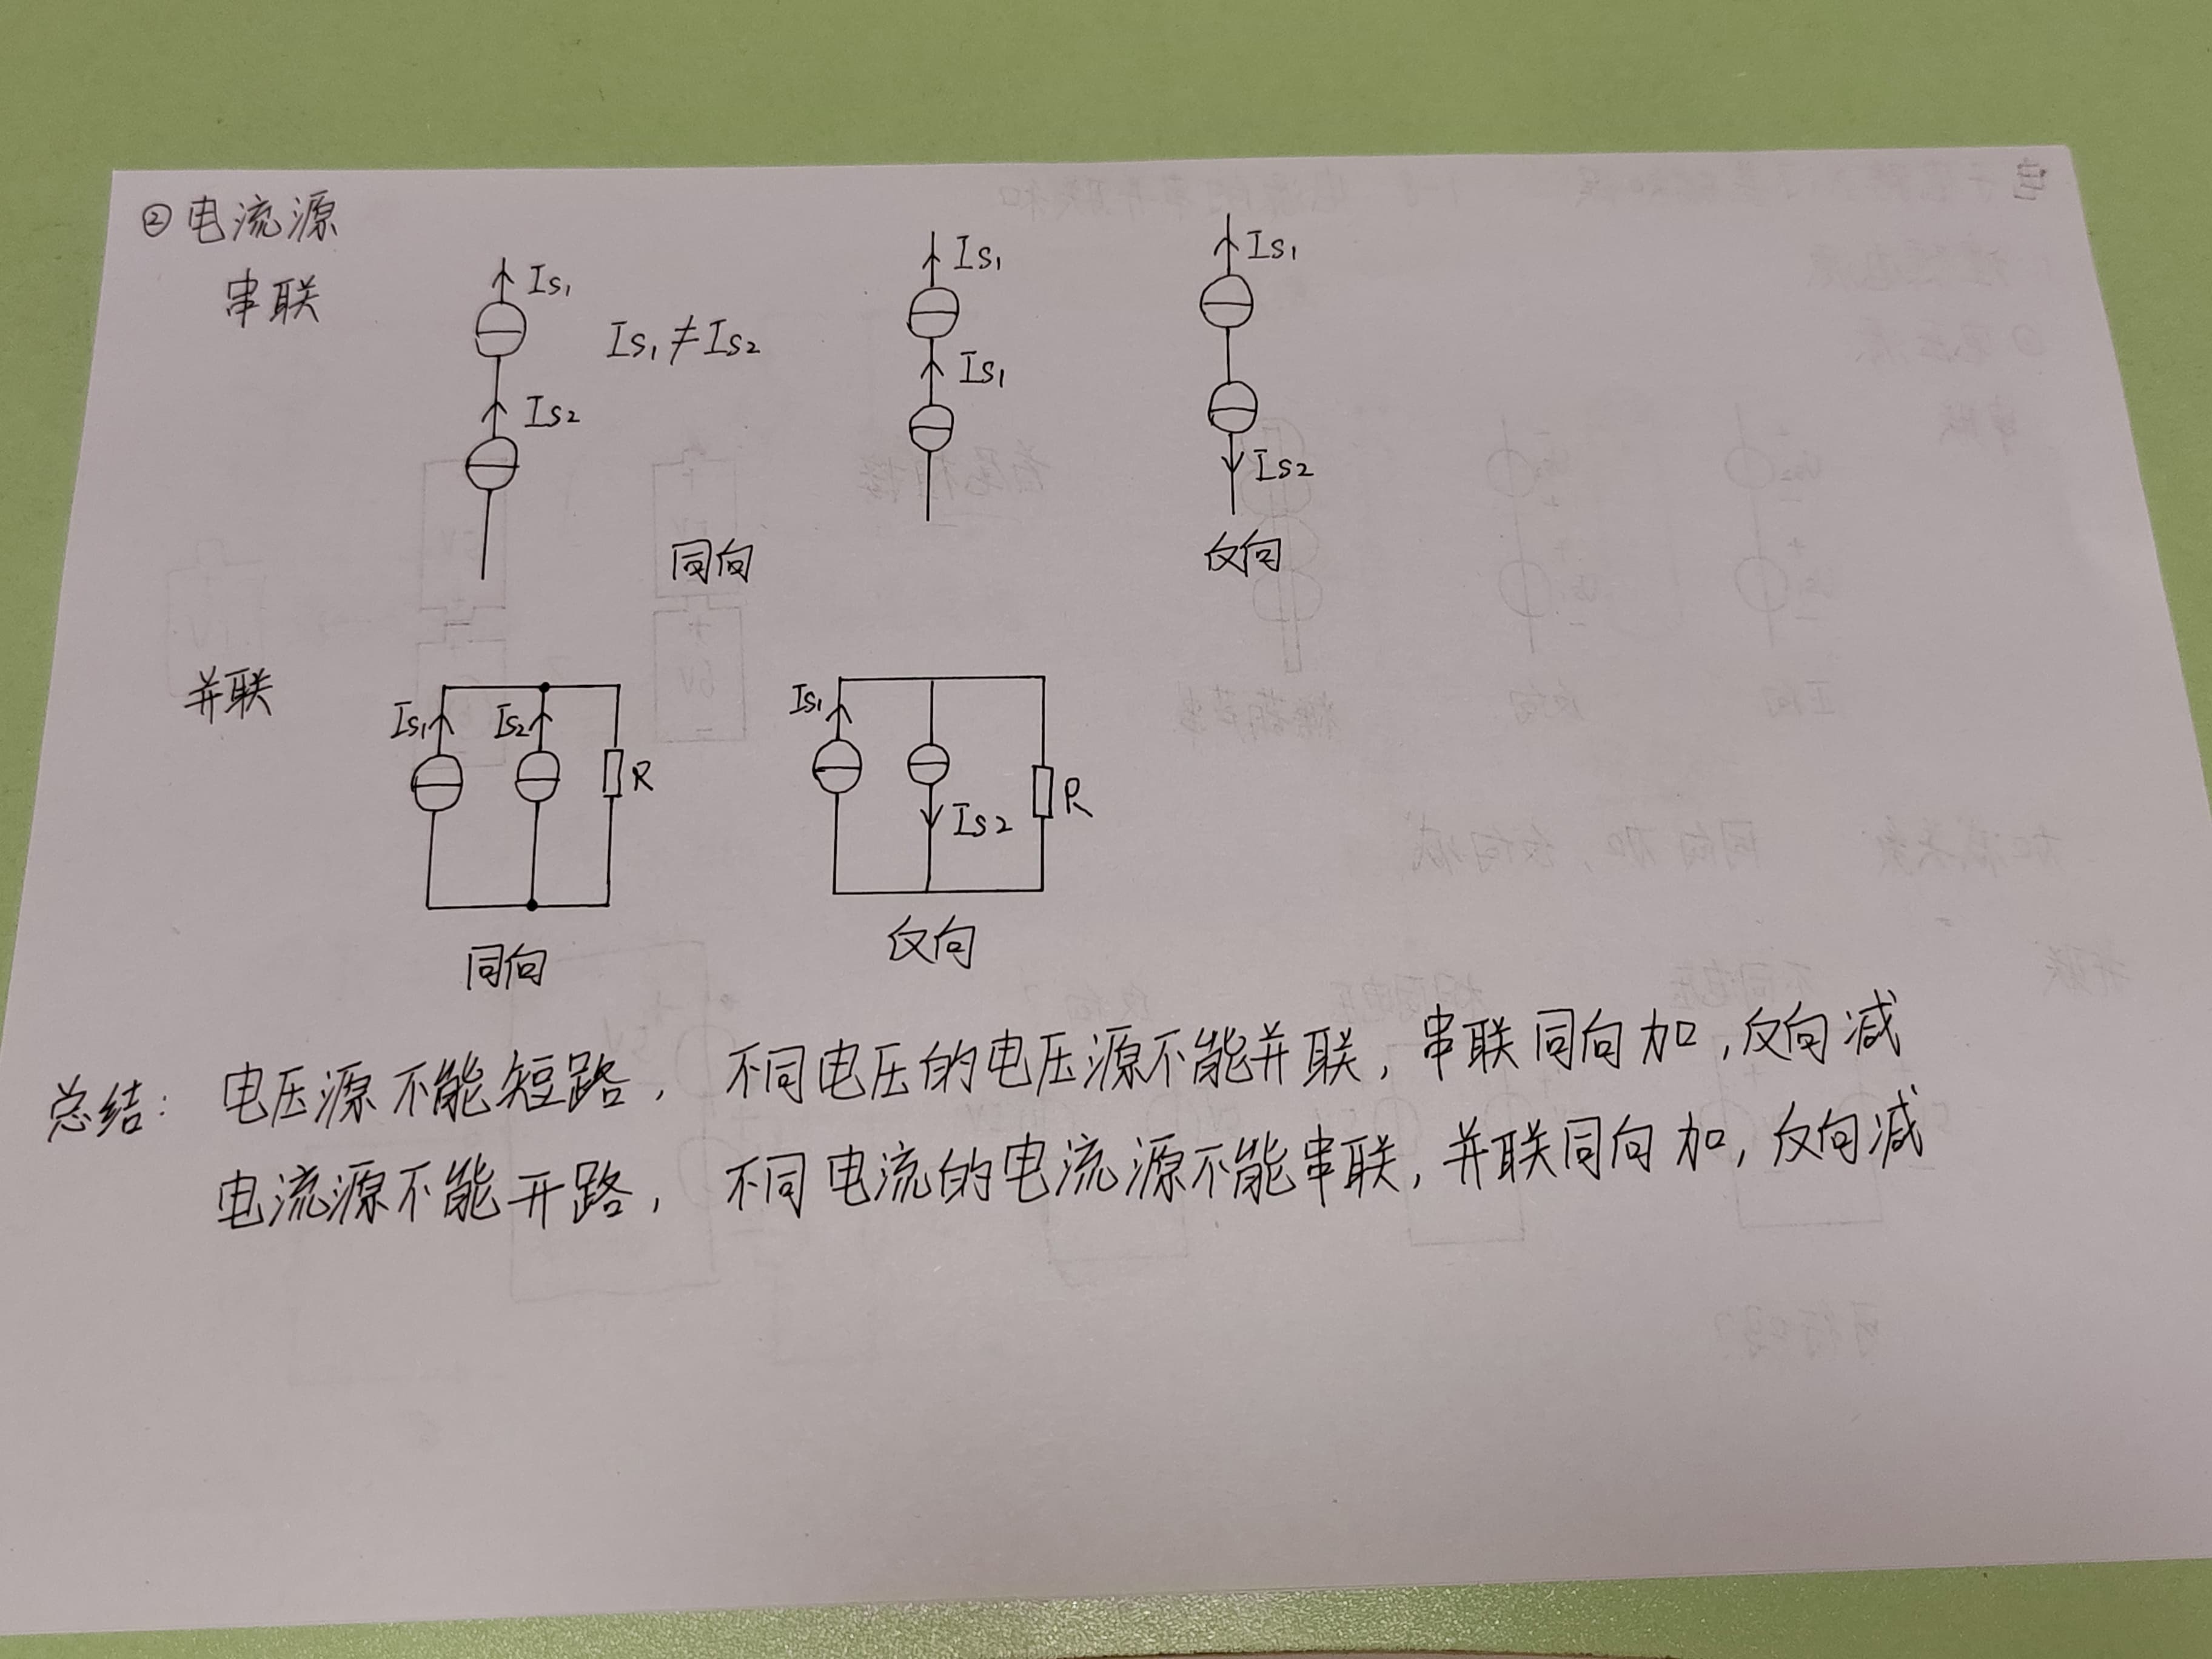 ②电流源
串联
Is₁
Is₂
Is₁≠Is₂
Is₁
Is₁
Is₁
Is₂
同向
反向
并联
Is₁
Is₂
R
Is₁
Is₂
R
同向
反向
总结：电压源不能短路，不同电压的电压源不能并联，串联同向加，反向减
电流源不能开路，不同电流的电流源不能串联，并联同向加，反向减